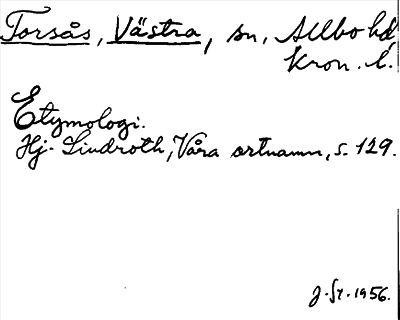 Torsås, Västra, sn, Allbo hd
Kron. l.
Etymologi.
Hj. Lindroth, Våra ortnamn, s. 129.
1956.